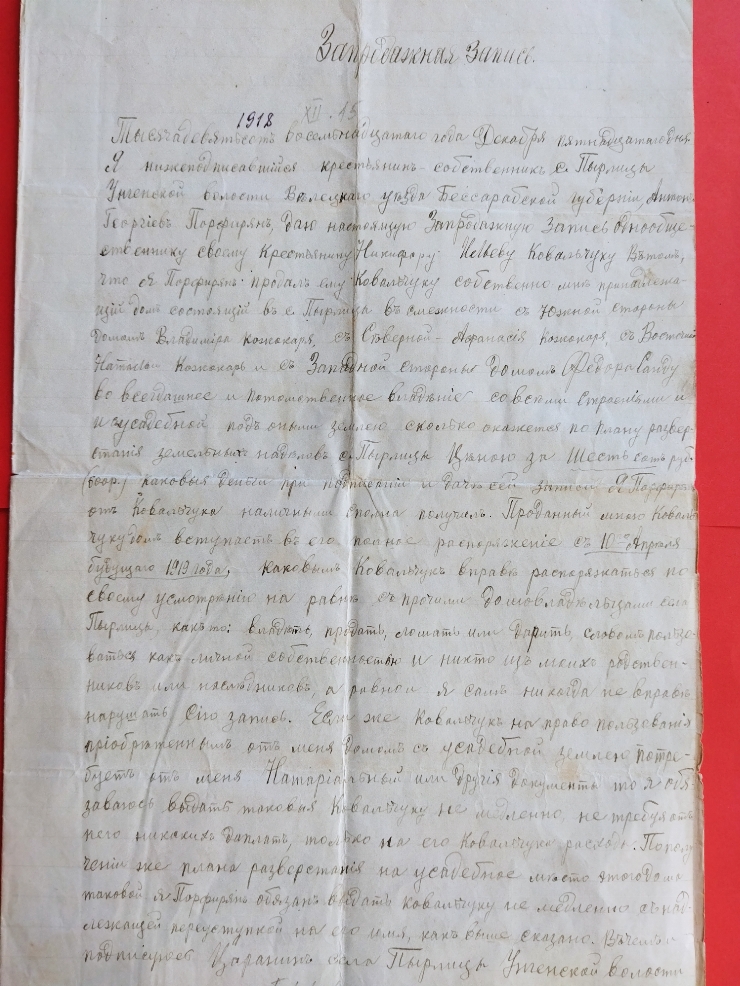 Запродажная Запись.
1918 XII. 15
Тысячадевятьсотъ восемьнадцатаго года Декабря пятнадцатаго дня
Я нижеподписавшійся крестьянинъ-собственникъ с. Пырлицы
Унгенской волости Бѣлецкаго уѣзда Бессарабской губерніи, Антонъ
Георгіевъ Порфирянъ, даю настоящую Запродажную Запись Однообще-
ственнику своему Крестьянину Никифору Ковальчуку Въ томъ,
что Я Порфирянъ продалъ ему Ковальчуку собственно мнѣ принадлежа-
щій домъ состоящій въ с. Пырлица въ смежности съ Южной стороны
домомъ Владиміра Кожокаря, съ Сѣверной - Афанасія Кожокаря, съ Восточной
Натальи Кожокарь и съ Западной стороны домомъ Федора Санду
во всегдашнее и потомственное владѣніе со всѣми Строеніями и
и усадебной подъ оными землею сколько окажется по плану развер-
станія земельныхъ надѣловъ с. Пырлицы Цѣною за Шесть сотъ руб
(600р.) каковыя деньги при подписаніи и дачѣ сей записи Я Порфирянъ
отъ Ковальчука наличными сполна получилъ. Проданный мною Коваль-
чуку домъ вступаетъ въ его полное распоряженіе съ 10-го Апреля
будущаго 1919 года, каковымъ Ковальчукъ вправѣ распоряжаться по
своему усмотрѣнію на равнѣ съ прочими домовладѣльцами села
Пырлицы, какъ то: владѣть, продать, ломать или дарить, словомъ пользо-
ваться какъ личной собственностью и никто изъ моихъ родствен-
никовъ или наслѣдниковъ, а равной я самъ никогда не вправѣ
нарушать Сію запись. Если же Ковальчукъ на право пользованія
пріобрѣтеннымъ отъ меня домомъ съ усадебной землею потре-
буетъ отъ меня Натаріальный или другія документы то я обя-
зываюсь выдать таковыя Ковальчуку не медленно, не требуя отъ
него никакихъ доплатъ, только на его Ковальчука расходы. По полу-
ченіи же плана разверстанія на усадебное мѣсто этого дома
таковой я Порфирянъ обязанъ выдать Ковальчуку не медленно съ над-
лежащей переуступкой на его имя, какъ выше сказано. Въ чемъ и
подписуюсь Царанинъ села Пырлицы Унгенской волости